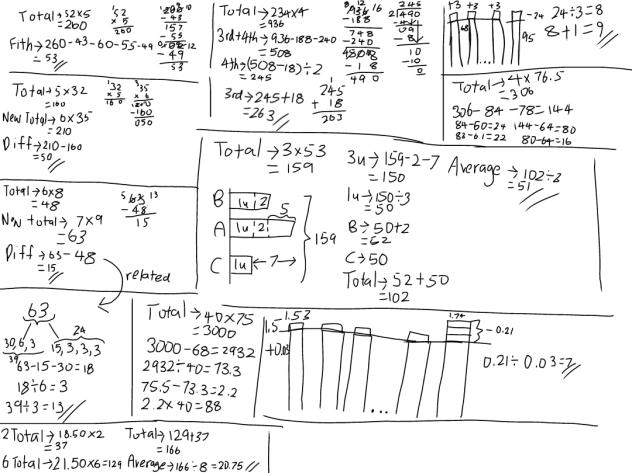 Total→52×5
=260
Fith→260-43-60-55-49
=53
52
× 5
260
-43
157
-49
53
Total→234×4
=936
3rd+4th→936-188-240
=508
4th→(508-18)÷2
=245
3rd→245+18
=263
245
+ 18
263
936
-188
748
-240
508
- 18
490
245
2√490
-4
09
-8
10
-10
0
+3 +3 +3
-24
95
24÷3=8
8+1=9
Total→4×76.5
=306
306-84-78=144
84-60=24 144-64=80
83-61=22 80-64=16
Total→5×32
=160
New Total→6×35
=210
Diff→210-160
=50
32
× 5
160
35
× 6
210
-160
050
Total→3×53
=159
B 1u 2
A 1u 2 5
C 1u 7
159
3u→159-2-7
=150
1u→150÷3
=50
B→50+2
=52
C→50
Total→52+50
=102
Average→102÷2
=51
Total→6×8
=48
New total→7×9
=63
Diff→63-48
=15
63
-48
15
related
63
30,6,3
39
24
15,3,3,3
63-15-30=18
18÷6=3
39÷3=13
Total→40×75
=3000
3000-68=2932
2932÷40=73.3
75.5-73.3=2.2
2.2×40=88
1.53
1.5
+0.03
1.74
-0.21
...
0.21÷0.03=7
2Total→18.50×2
=37
6Total→21.50×6=129
Total→129+37
=166
Average→166÷8=20.75